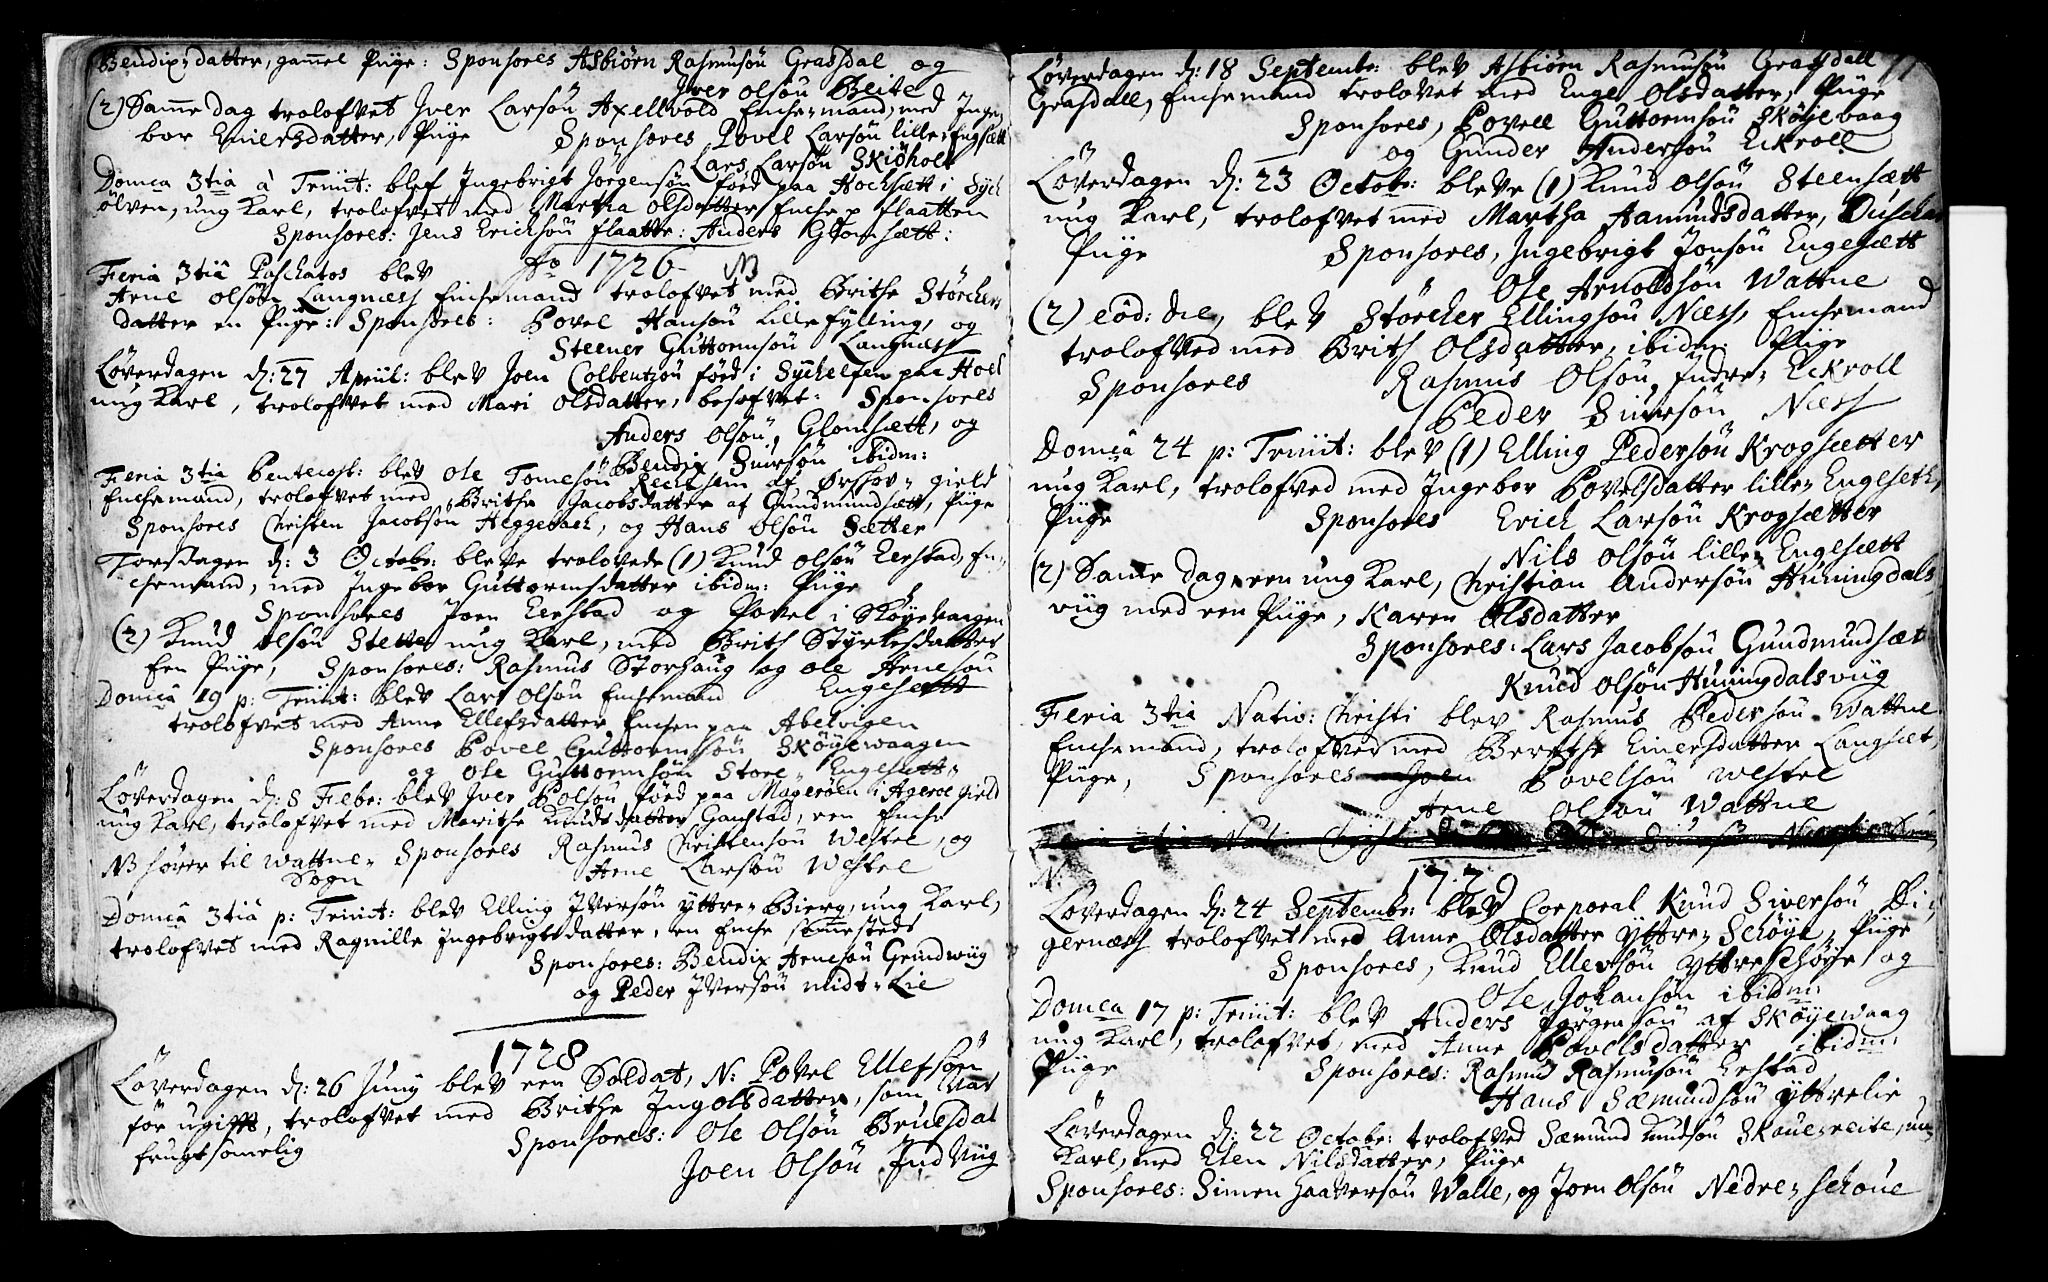 Bendixdatter, gammel Piige: Sponsores Asbiörn Rasmusön Grasdal og
Iver olsön Beite
(2) Samme dag trolofvet Jver Larsön Axellvold Enchemand, med Inge,
bor Einersdatter, Piige Sponsores Povel Larsön lille Engsætt
Lars Larsön Skiöholt
Domca 3tia à Trinit: blef Ingebrigt Jörgensön föed paa Hochsætt i Sych
ölven, ung Karl, trolofvet med Martha olsdatter Enche flaatten
Sponsores: Jens Erichsön flaatte: Anders Glomsætt:
Ao 1726 NB
Feria 3tia Paschatos blev
Arne olsön Langnæss Enchemand trolofvet med Brithe Störchers
datter en Piige: Sponsores: Povel Hansön Lille fylling, og
Steener Guttormsön Langnæss
Löverdagen d: 27 Apriil: blev Joen Colbentsön föed i Sychelfen paa Hoel
ung Karl, trolofvet med Mari olsdatter, besofvet: Sponsores
Anders Olsön Glomsætt, og
Bendix Siursön ibidm:
Feria 3tia Pentecost: blev Ole Tomesön af Ørschov gield
Enchemand, trolofvet med Brithe Jacobsdatter af Gundmundsætt, Piige
Sponsores Christen Jacobsön Heggebach, og Hans Olsön Sætter
Torsdagen d: 3 Octobr: bleve trolovede (1) Knud olsön Eerstad, En,
chemand, med Ingebor Guttormsdatter ibidm: Piige
Sponsores Joen Eerstad og Povel i Sköyevaagen
(2) Knud olsön Stette ung Karl, med Brith Styrkesdatter
Een Piige, Sponsores: Rasmus Storhaug og ole Arnesön
Engesett
Domca 19 p: Triit: blev Lars Olsön Enchemand
trolofvet med Anne Ellefsdatter Enchen paa Abelvigen
Sponsores Povel Guttormsön Sköyewaagen
og Ole Guttormsön Store Engesætt
Löverdagen d: 8 Febr: blev Jver Polsön föed paa Mageröen i Ageroe gield
ung Karl, trolofvet med Marithe Knudsdatter Ganstad, een Enche
NB hörer til wattne Sponsores Rasmus Christensön Westre, og
Sogn Arne Larsön Westre
Domca 3tia p: Trinit: blev Elling Iversön yttre Bierg, ung Karl,
trolofvet med Ragnille Ingebrigtsdatter, en Enche sammesteds
Sponsores: Bendix Arnesön Grindwiig
og Peder Iversön midt Lie
1728
Löverdagen d: 26 Juny blev een Soldat, N: Povel Ellefsön
för ugift, trolofvet med Brithe Ingolsdatter, som var
frugtsomelig Sponsores: Ole Olsön Bruesdal
Joen Olsön Ind Viig
Löverdagen d: 18 Septembr: blev Asbiörn Rasmusön Grassdall
Grasdall, Enchemand trolovet med Engel Olsdatter, Piige
Sponsores, Povell Guttormsön Sköyevaag
og Gunder Andersön Eckroll
Löverdagen d: 23 Octobr: bleve (1) Knud olsön Steensætt
ung Karl, trolofvet med Martha Aamundsdatter,
Piige Sponsores, Ingebrigt Jonsön Engesætt
Ole Arnoldsön Wattne
(2) eöd: die, blev Störcher Ellingsön Næss, Enchemand
trolofved med Brith Olsdatter, ibidm: Piige
Sponsores Rasmus Olsön Indre Eckroll
Peder Siursön Næss
Domca 24 p: Trinit: blev (1) Elling Pedersön Krogsætter
ung Karl, trolofved med Ingebor Povelsdatter lille Engeseth,
Piige Sponsores Erich Larsön Krogsætter
Nils olsön lille Engesætt
(2) Samme dag een ung Karl, Christian Andersön Hunningdals,
viig med een Piige, Karen Olsdatter
Sponsores: Lars Jacobsön Gundmundsæt
Knud Olsön Huningdalsviig
Feria 3tia Nativ: Christi blev Rasmus Pedersön Wattne
Enchemand, trolofved med Berethe Einersdatter Langsæt,
Piige, Sponsores Joen Povelsön westre
Arne Olsön Wattne
Feria 3tia Nativ: Christi
172
Löverdagen d: 24 Septembr: blev Corporal Knud Siversön Di,
gernæss trolofvet med Anne Olsdatter Yttre Schöye, Piige
Sponsores, Knud Ellevsön yttre Schöye og
Ole Johansön ibidm:
Domca 17 p: Triit: blev Anders Jörgensön af Sköyewaag
ung Karl, trolofvet med Anne Povelsdatter ibidm:
Piige Sponsores: Rasmus Rasmusön Erstad
Hans Sæmundsön yttrelie
Löverdagen d: 22 Octobr: trolofved Sæmund Knudsön Skouereite, un
Karl, med Elen Nilsdatter, Piige
Sponsores: Simen Haaversön Walle, og Joen Olsön Nedre Schoue